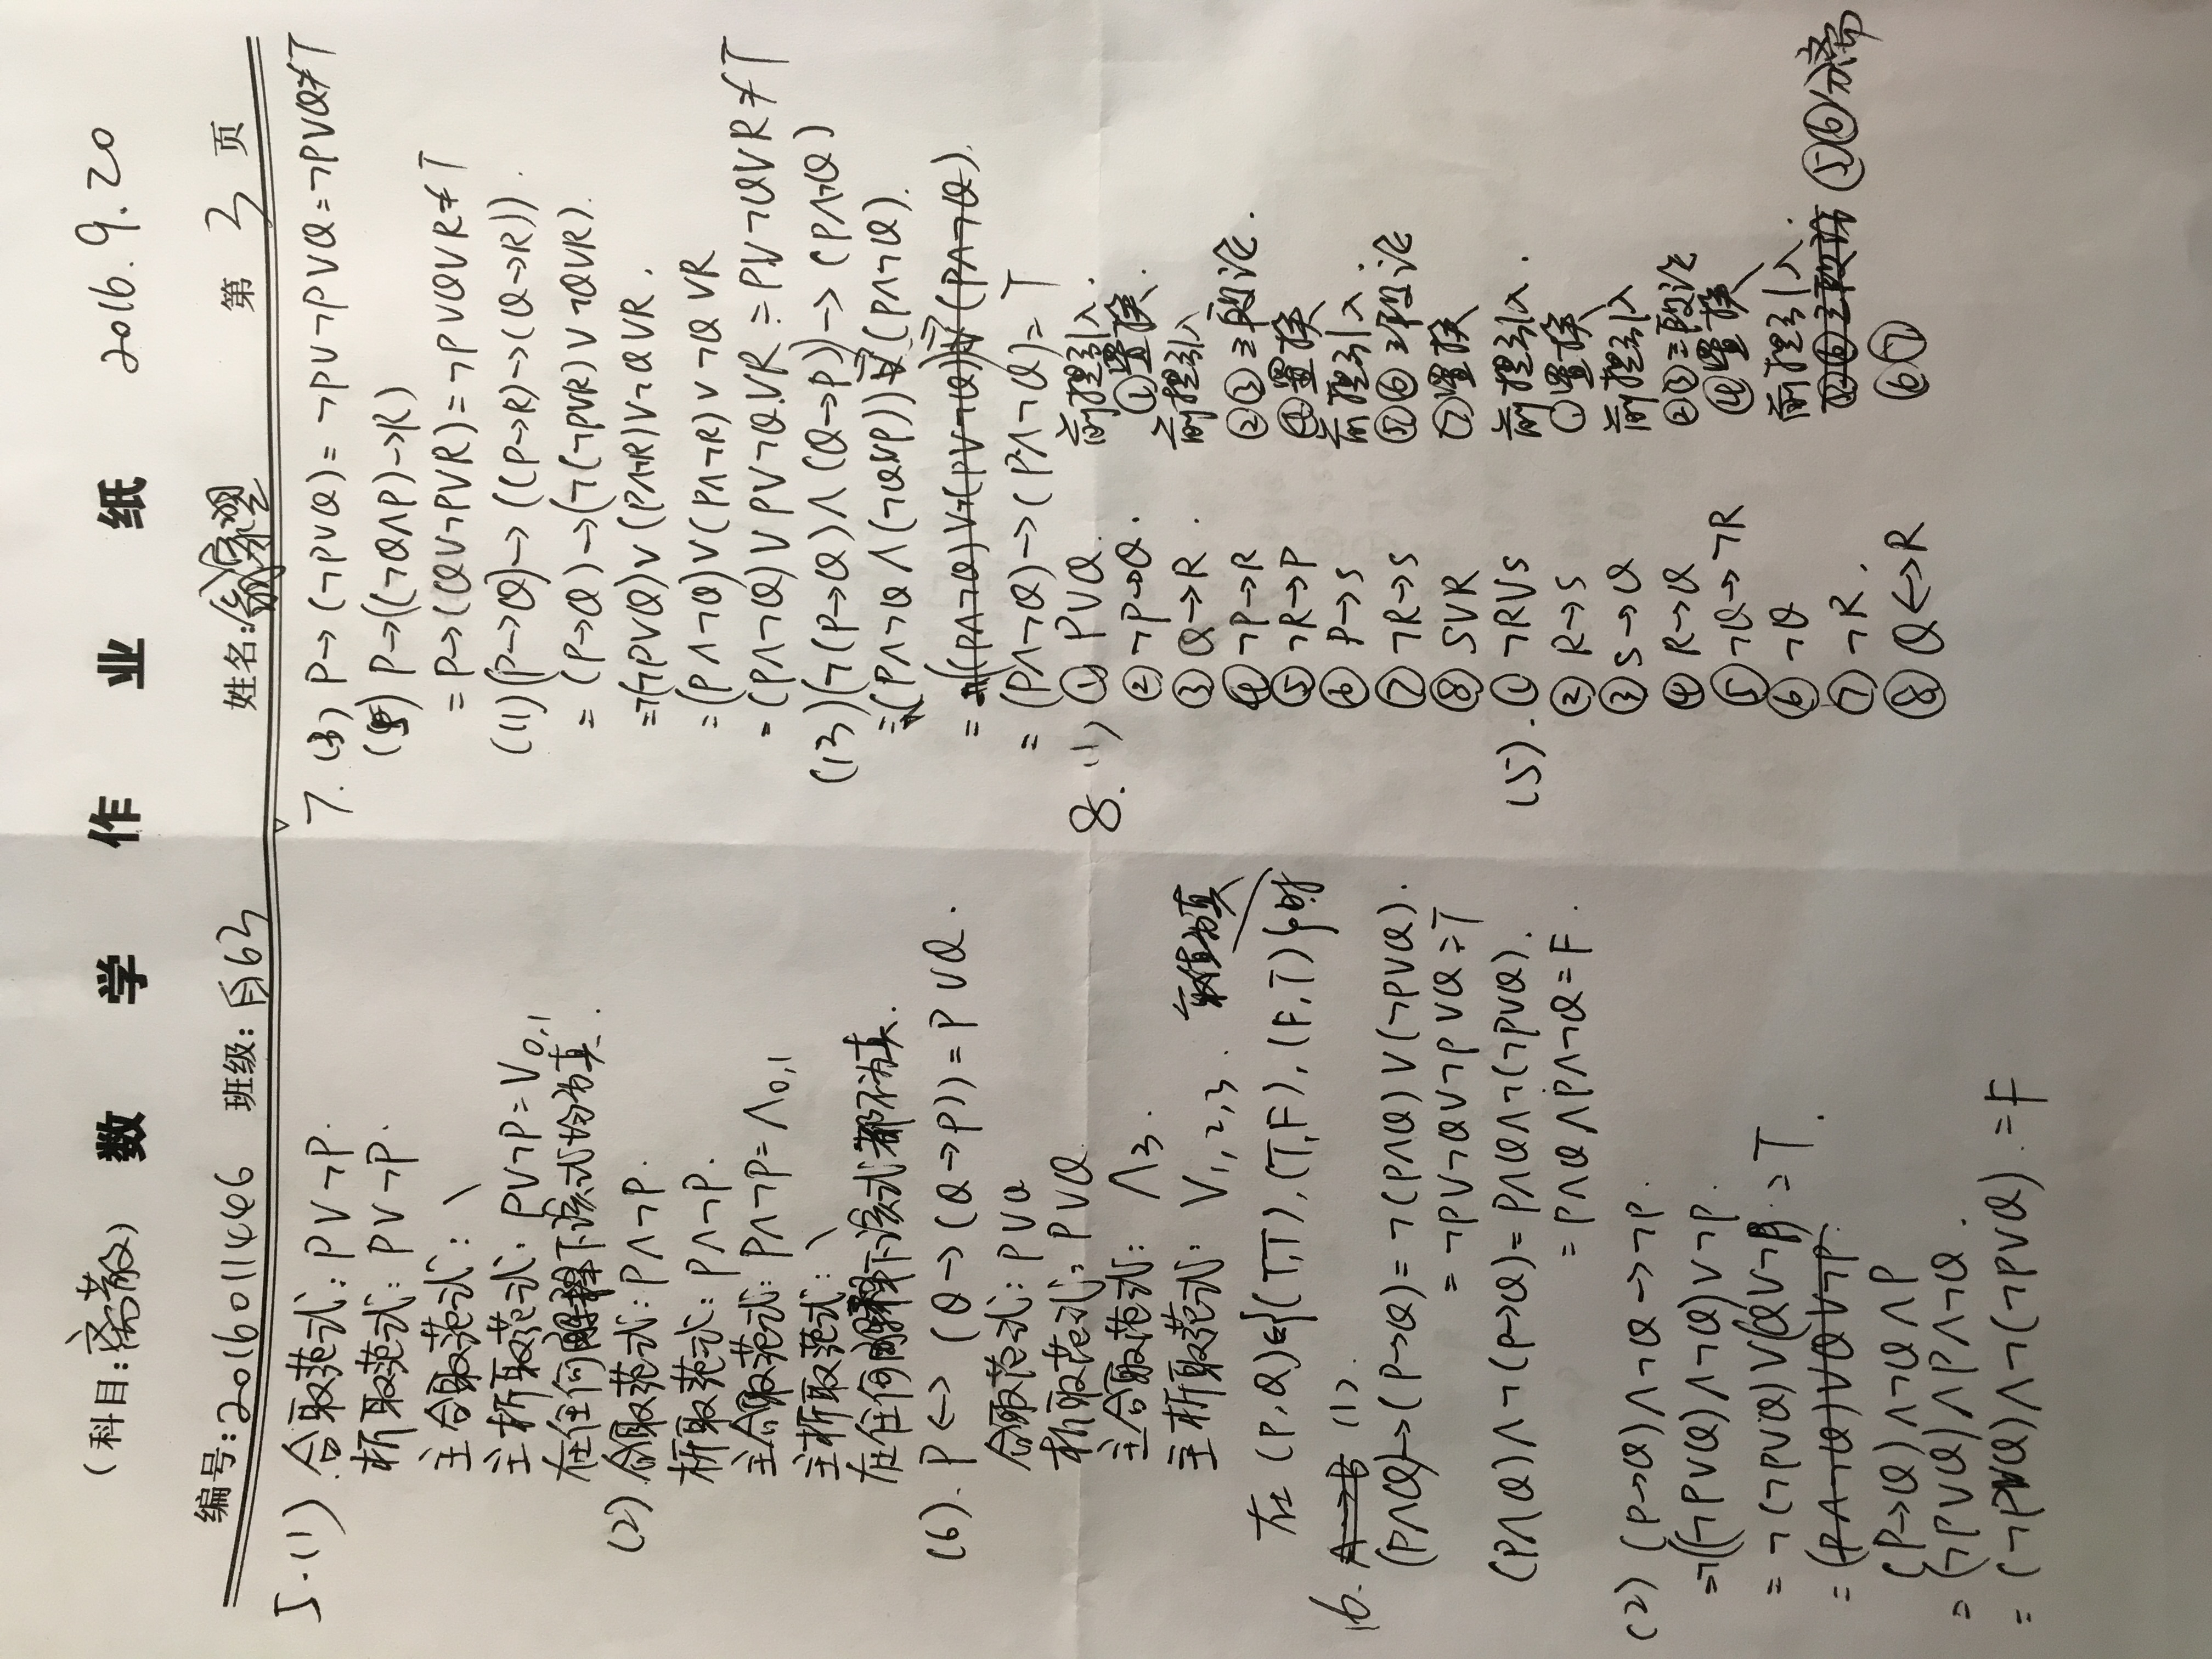 (科目:离散) 数学作业纸 2016.9.20
编号:2016011446 班级:自63 姓名:翁家翌 第 3 页
5.(1) 合取范式: P∨¬P.
析取范式: P∨¬P.
主合取范式: \
主析取范式: P∨¬P=∨0,1
在任何解释下该式均为真.
(2) 合取范式: P∧¬P.
析取范式: P∧¬P.
主合取范式: P∧¬P=∧0,1
主析取范式: \
在任何解释下该式都不为真.
(6). P↔(Q→(Q→P))=P∨Q.
合取范式: P∨Q
析取范式: P∨Q.
主合取范式: ∧3.
主析取范式: ∨1,2,3. 取值为真
在 (P,Q)∈{(T,T),(T,F),(F,T)}时
6. A→B (1).
(P∧Q)→(P→Q)=¬(P∧Q)∨(¬P∨Q).
=¬P∨¬Q∨¬P∨Q=T
(P∧Q)∧¬(P→Q)=P∧Q∧¬(¬P∨Q).
=P∧Q∧P∧¬Q=F.
(2) (P→Q)∧¬Q→¬P.
=¬((¬P∨Q)∧¬Q)∨¬P.
=¬(¬P∨Q)∨(Q∨¬P)=T.
=(P∧¬Q)∨Q∨¬P.
(P→Q)∧¬Q∧P
=(¬P∨Q)∧P∧¬Q.
=(¬P∨Q)∧¬(¬P∨Q).=F
7. (3) P→(¬P∨Q)=¬P∨¬P∨Q=¬P∨Q≠T
(5) P→((¬Q∧P)→R)
=P→(Q∨¬P∨R)=¬P∨Q∨R≠T
(11)(P→Q)→((P→R)→(Q→R)).
=(P→Q)→(¬(¬P∨R)∨¬Q∨R).
=¬(¬P∨Q)∨(P∧¬R)∨¬Q∨R.
=(P∧¬Q)∨(P∧¬R)∨¬Q∨R
=(P∧¬Q)∨P∨¬Q∨R=P∨¬Q∨R≠T
(13)(¬(P→Q)∧(Q→P))→(P∧¬Q)
=(P∧¬Q∧(¬Q∨P))→(P∧¬Q).
=((P∧¬Q)∨¬(P∨¬Q))→(P∧¬Q).
=(P∧¬Q)→(P∧¬Q)=T
8.(1) ① P∨Q. 前提引入.
② ¬P→Q. ①置换.
③ Q→R. 前提引入
④ ¬P→R ②③三段论.
⑤ ¬R→P ④置换
⑥ P→S 前提引入.
⑦ ¬R→S ⑤⑥三段论
⑧ S∨R ⑦置换
(5). ① ¬R∨S 前提引入.
② R→S ①置换
③ S→Q 前提引入
④ R→Q ②③三段论
⑤ ¬Q→¬R ④置换
⑥ ¬Q 前提引入.
⑦ ¬R. ⑤⑥三段论 ⑤⑥分离
⑧ Q↔R ⑥⑦